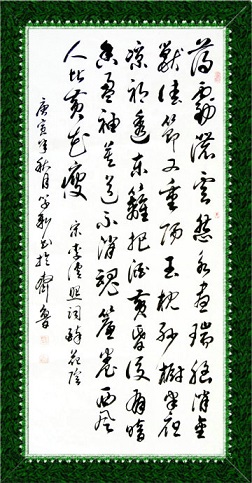 薄霧濃雲愁永晝瑞腦消金
獸佳節又重陽玉枕紗櫥半夜
涼初透東籬把酒黃昏後有暗
香盈袖莫道不消魂簾卷西風
人比黃花瘦 宋李清照詞醉花陰
庚寅年秋月書於齊魯